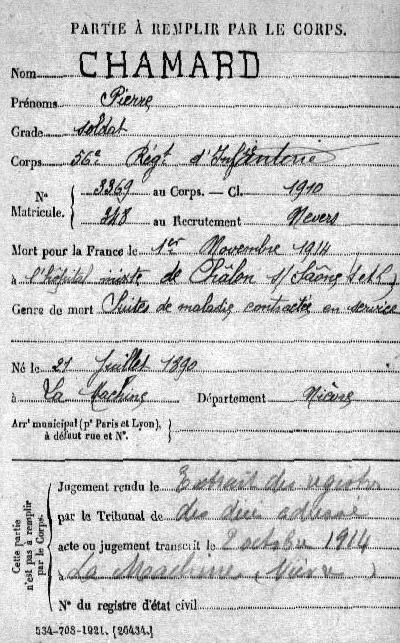 PARTIE À REMPLIR PAR LE CORPS.
Nom CHAMARD
Prénoms Pierre
Grade soldat
Corps 56e Régt d'Infanterie
N° Matricule. { 3369 au Corps. — Cl. 1910
348 au Recrutement Nevers
Mort pour la France le 1er Novembre 1914
à l'hôpital mixte de Châlon s/ Saône (S et L)
Genre de mort Suites de maladie contractée en service
Né le 21 Juillet 1890
à La Machine Département Nièvre
Arrt municipal (pr Paris et Lyon), à défaut rue et N°. {
Cette partie n'est pas à remplir par le Corps. { Jugement rendu le Extrait des registres
par le Tribunal de des de
acte ou jugement transcrit le 2 octobre 1914
à La Machine (Nièvre)
N° du registre d'état civil
534-708-1921. [26434.]